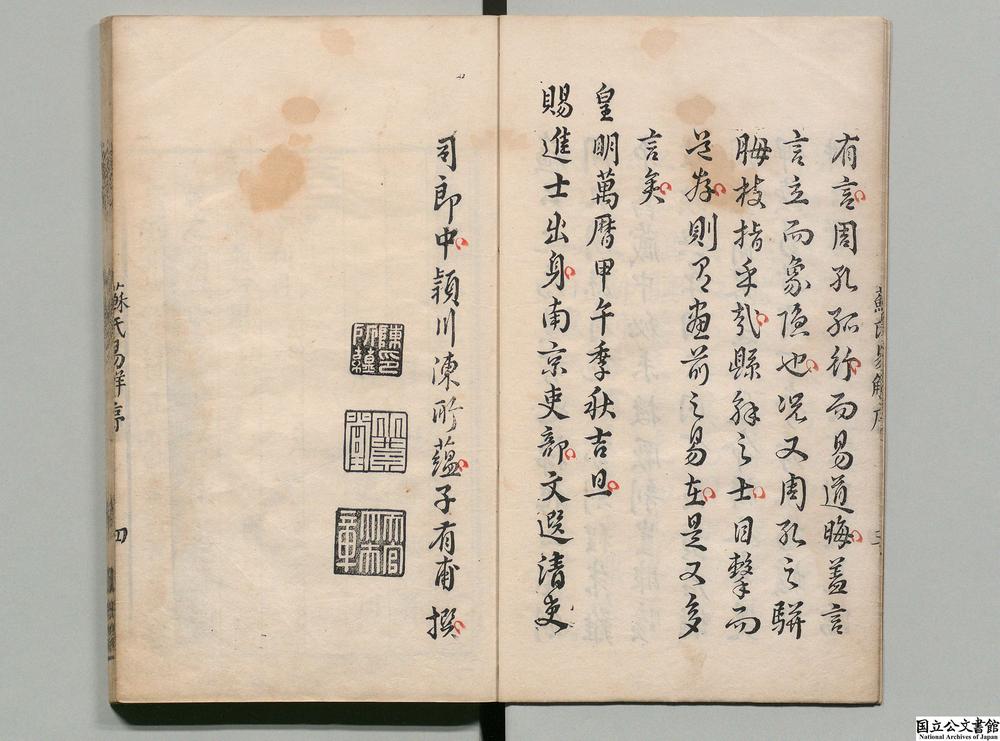 有言周孔孤行而易道晦蓋言
言立而象隱也況又周孔之駢
晦枝指乎哉縣解之士目擊而
道存則畫前之易在是又多
言矣
皇明萬曆甲午季秋吉旦
賜進士出身南京吏部文選清吏
司郎中潁川陳所蘊子有甫撰
陳所蘊印
天官大夫章
蘇氏易解序
三
蘇氏易解序
四
国立公文書館
National Archives of Japan